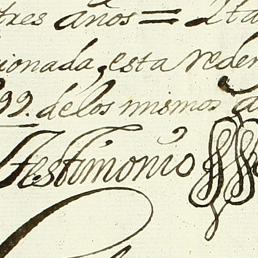 tres años = Ita
ionada, esta reden
99. de los mismos a
Testimonio